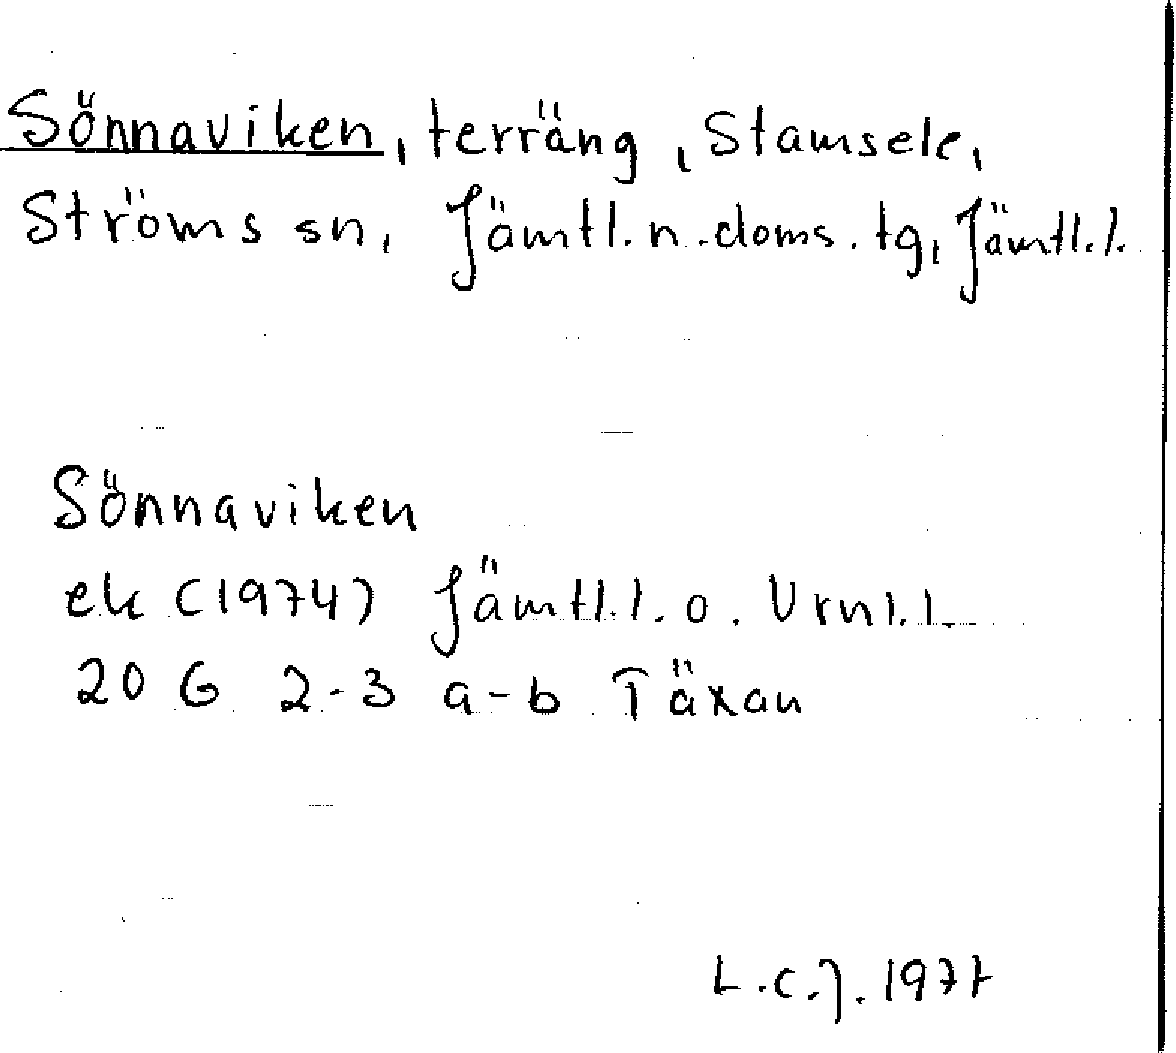 Sönnaviken, terräng, Stamsele,
Ströms sn, Jämtl. n. doms. tg, Jämtl. l.
Sönnaviken
ek (1974) Jämtl. l. o. Vrnl. l.
20 G 2-3 a-b Täxan
L.C.J. 1977